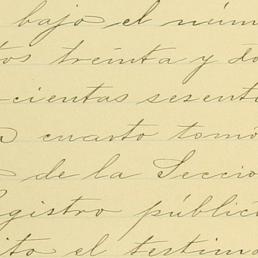 bajo el núm
tos treinta y do
cientas sesent
cuarto tomo
de la Seccio
egistro públic
ito el testim